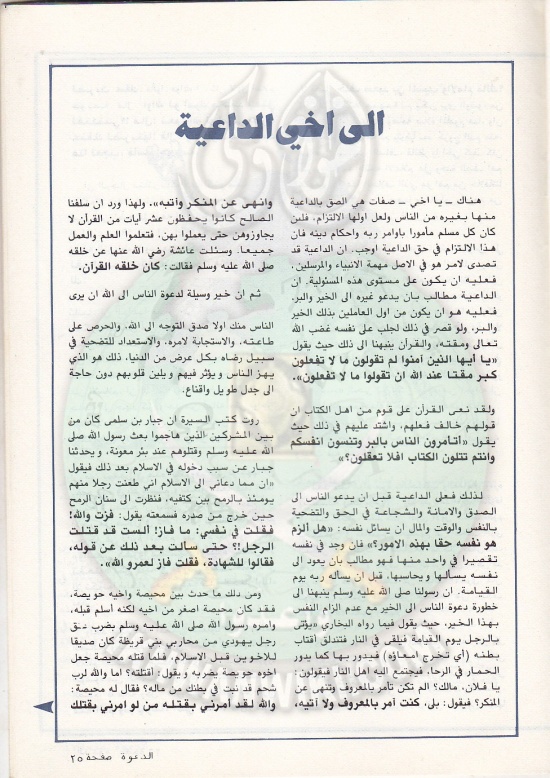 الى اخي الداعية
هناك ــ يا اخي ــ صفات هي الصق بالداعية
منها بغيره من الناس ولعل اولها الالتزام، فلئن
كان كل مسلم مأمورا باوامر ربه واحكام دينه فان
هذا الالتزام في حق الداعية اوجب. ان الداعية قد
تصدى لامر هو في الاصل مهمة الانبياء والمرسلين،
فعليه ان يكون على مستوى هذه المسئولية. ان
الداعية مطالب بان يدعو غيره الى الخير والبر،
فعليه هو ان يكون من اول العاملين بذلك الخير
والبر، ولو قصر في ذلك لجلب على نفسه غضب الله
تعالى ومقته، والقرآن ينبهنا الى ذلك حيث يقول
«يا أيها الذين آمنوا لم تقولون ما لا تفعلون
كبر مقتا عند الله ان تقولوا ما لا تفعلون».
ولقد نعى القرآن على قوم من اهل الكتاب ان
قولهم خالف فعلهم، واشتد عليهم في ذلك حيث
يقول «أتأمرون الناس بالبر وتنسون انفسكم
وانتم تتلون الكتاب افلا تعقلون؟»
لذلك فعلى الداعية قبل ان يدعو الناس الى
الصدق والامانة والشجاعة في الحق والتضحية
بالنفس والوقت والمال ان يسائل نفسه: «هل ألزم
هو نفسه حقا بهذه الامور؟» فان وجد في نفسه
تقصيرا في واحد منها فهو مطالب بان يعود الى
نفسه يسألها ويحاسبها، قبل ان يسأله ربه يوم
القيامة. ان رسولنا صلى الله عليه وسلم ينبهنا الى
خطورة دعوة الناس الى الخير مع عدم الزام النفس
بهذا الخير، حيث يقول فيما رواه البخاري «يؤتى
بالرجل يوم القيامة فيلقى في النار فتندلق أقتاب
بطنه (أي تخرج امعاؤه) فيدور بها كما يدور
الحمار في الرحا، فيجتمع اليه اهل النار فيقولون:
يا فلان، مالك؟ الم تكن تأمر بالمعروف وتنهى عن
المنكر؟ فيقول: بلى، كنت آمر بالمعروف ولا آتيه،
وانهى عن المنكر وأتيه». ولهذا ورد ان سلفنا
الصالح كانوا يحفظون عشر آيات من القرآن لا
يجاوزوهن حتى يعملوا بهن، فتعلموا العلم والعمل
جميعا. وسئلت عائشة رضي الله عنها عن خلقه
صلى الله عليه وسلم فقالت: كان خلقه القرآن.
ثم ان خير وسيلة لدعوة الناس الى الله ان يرى
الناس منك اولا صدق التوجه الى الله، والحرص على
طاعته، والاستجابة لامره، والاستعداد للتضحية في
سبيل رضاه بكل عرض من الدنيا، ذلك هو الذي
يهز الناس ويؤثر فيهم ويلين قلوبهم دون حاجة
الى جدل طويل واقناع.
روت كتب السيرة ان جبار بن سلمى كان من
بين المشركين الذين هاجموا بعث رسول الله صلى
الله عليه وسلم وقتلوهم عند بئر معونة، ويحدثنا
جبار عن سبب دخوله في الاسلام بعد ذلك فيقول
«ان مما دعاني الى الاسلام اني طعنت رجلا منهم
يومئذ بالرمح بين كتفيه، فنظرت الى سنان الرمح
حين خرج من صدره فسمعته يقول: فزت والله!
فقلت في نفسي: ما فاز! ألست قد قتلت
الرجل!؟ حتى سألت بعد ذلك عن قوله،
فقالوا للشهادة، فقلت فاز لعمرو الله».
ومن ذلك ما حدث بين محيصة واخيه حويصة،
فقد كان محيصة اصغر من اخيه لكنه أسلم قبله،
وامره رسول الله صلى الله عليه وسلم بضرب عنق
رجل يهودي من محاربي بني قريظة كان صديقا
للاخوين قبل الاسلام، فلما قتله محيصة جعل
اخوه حويصة يضربه ويقول: أقتلته؟ اما والله لرب
شحم قد نبت في بطنك من ماله؟ فقال له محيصة:
والله لقد أمرني بقتله من لو امرني بقتلك
الدعوة صفحة ٢٥